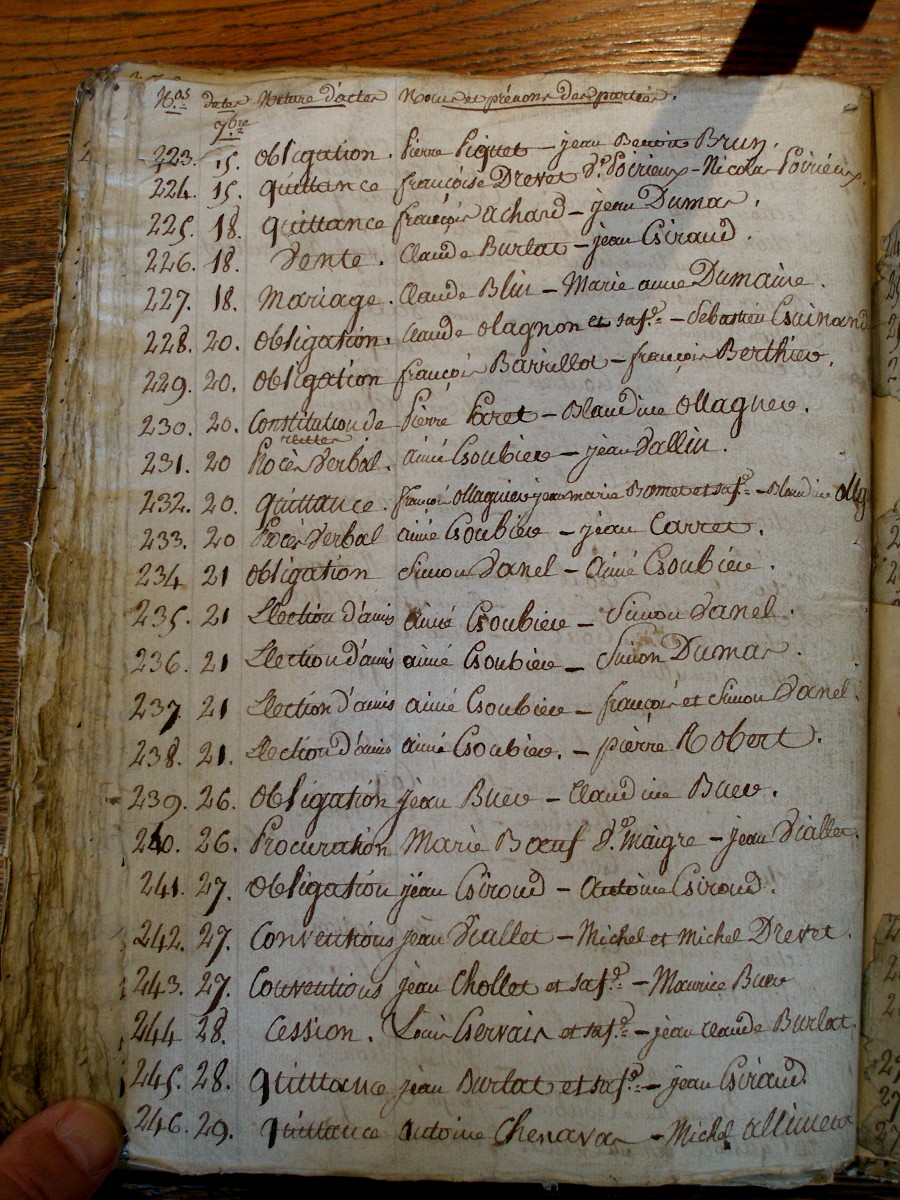 Nos dates Nature d'actes Noms et prénoms des parties.
7bre
223. 15. Obligation. Pierre Piquet – jean Benoit Brun.
224. 15. quittance françoise Drevet Vve Poirieux – Nicolas Poirieux.
225. 18. quittance françois achard – jean Dumas.
226. 18. Vente. Claude Burlat – jean Giraud.
227. 18. Mariage. Claude Blin – Marie anne Dumaine.
228. 20. Obligation. Claude Olagnon et sa fe. – Sébastien Guinand
229. 20. Obligation françois Barrillot – françois Berthier.
230. 20. Constitution de Pierre Paret – Blandine Ollagnier.
rentes
231. 20 Procès Verbal. aimé Goubier – jean Vallin.
232. 20. quittance. françois Ollagnier jean marie Bonnet et sa fe. – Blandine Ollag
233. 20 Procès Verbal aimé Goubier – jean Carret.
234 21 Obligation Simon Vanel – Aimé Goubier.
235. 21 Election d'amis aimé Goubier – Simon Vanel.
236. 21 Election d'amis aimé Goubier – Simon Dumas.
237 21 Election d'amis aimé Goubier – françois et Simon Vanel.
238. 21. Election d'amis aimé Goubier. – pierre Robert.
239. 26. Obligation jean Buer – Claudine Buer.
240. 26. Procuration Marie Bœuf Vve Maigre – jean Viallet.
241. 27. Obligation jean Giroud – Antoine Giroud.
242. 27. Conventions jean Viallet – Michel et Michel Drevet.
243. 27. Conventions jean Chollet et sa fe. – Maurice Buer
244 28. Cession. Louis Gervais et sa fe. – jean Claude Burlat.
245. 28. quittance jean Burlat et sa fe. – jean Giraud.
246. 29. quittance antoine Chenavas – Michel